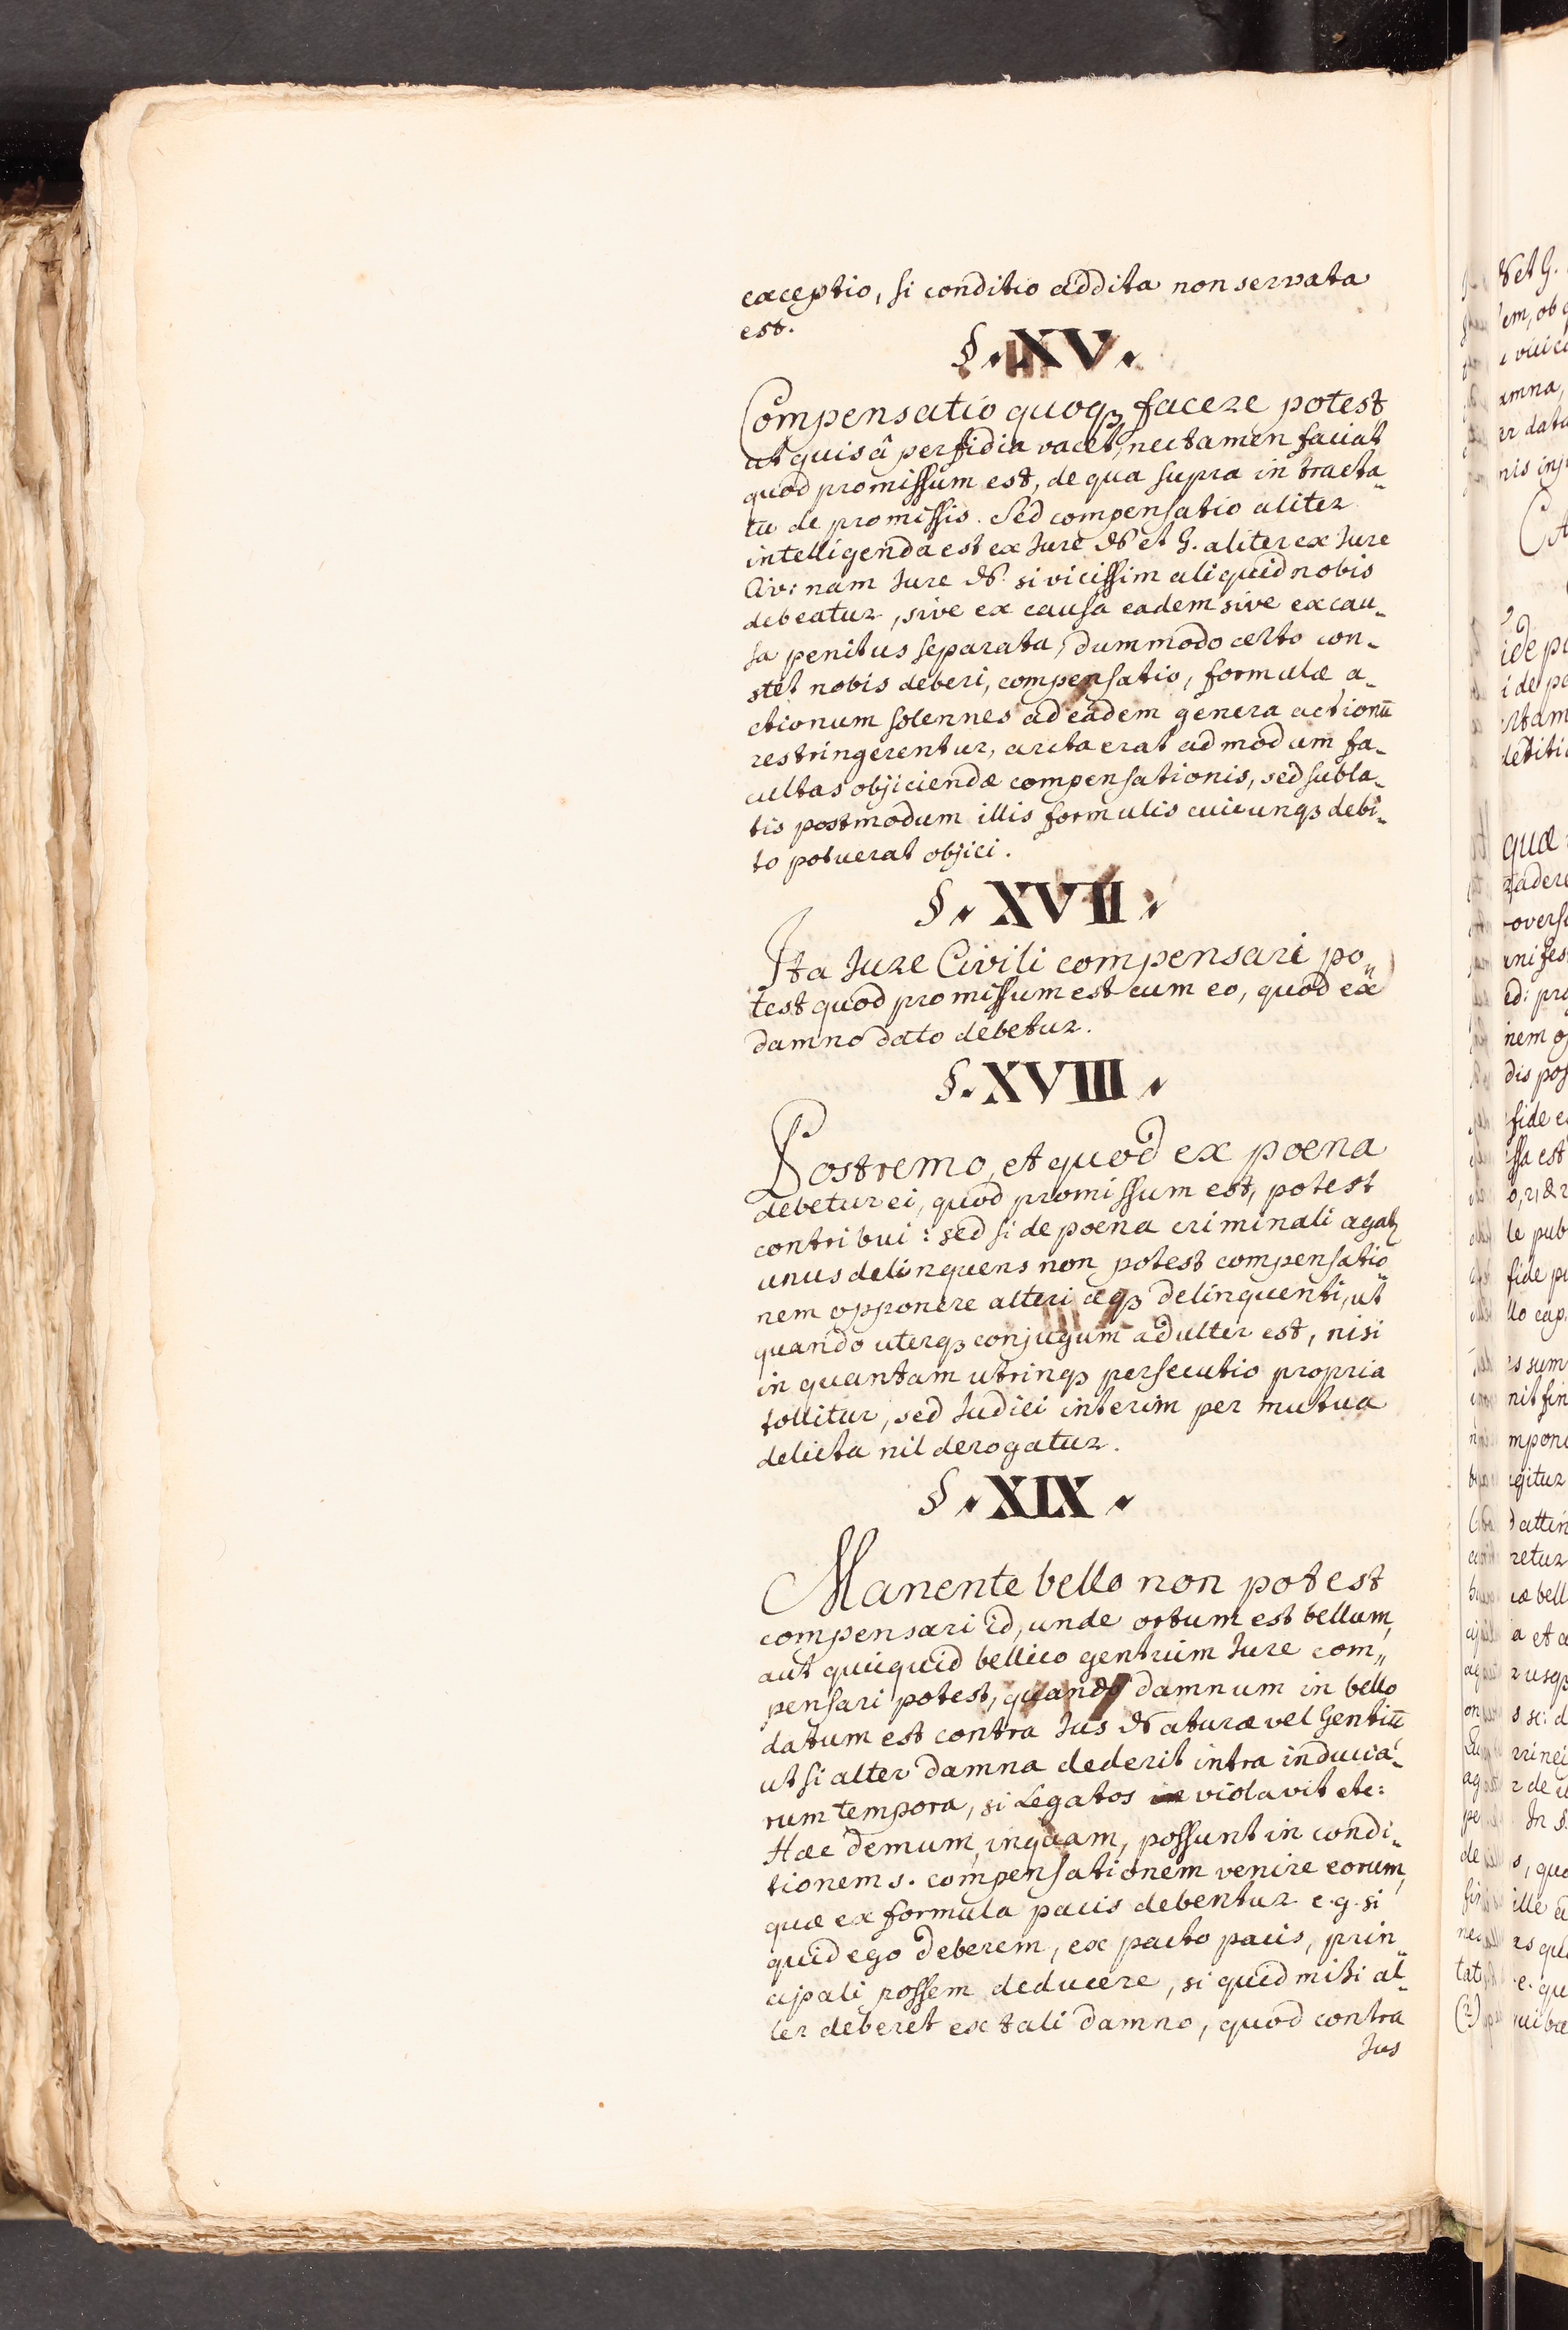 exceptio, si conditio addita non servata
est.
§. XV.
Compensatio quoqꝫ facere potest
ut quis â perfidia vacet, nec tamen faciat
quod promissum est, de qua supra in tracta-
tu de promissis. Sed compensatio aliter
intelligenda est ex Jure N et G. aliter ex Jure
Civ: nam Jure N. si vicissim aliquid nobis
debeatur, sive ex causa eadem sive ex cau-
sa penitus separata, dummodo certo con-
stet nobis deberi, compensatio, formulæ a-
ctionum solennes ad eadem genera actionū
restringerentur, arcta erat admodum fa-
cultas objiciendæ compensationis, sed subla-
tis postmodum illis formulis cuicunqꝫ debi-
to potuerat objici.
§. XVII.
Ita Jure Civili compensari po-
test quod promissum est cum eo, quod ex
damno dato debetur.
§. XVIII.
Postremo, et quod ex poena
debetur ei, quod promissum est, potest
contribui: sed si de poena criminali agatꝫ
unus delinquens non potest compensatio-
nem opponere alteri æqꝫ delinquenti, ut
quando uterqꝫ conjugum adulter est, nisi
in quantam utrinqꝫ persecutio propria
tollitur, sed Judici interim per mutua
delicta nil derogatur.
§. XIX.
Manente bello non potest
compensari id, unde ortum est bellum,
aut quicquid bellico gentium Jure com-
pensari potest, quando damnum in bello
datum est contra Jus Naturæ vel Gentiū
ut si alter damna dederit intra inducia-
rum tempora, si Legatos violavit etc:
Hæc demum, inquam, possunt in condi-
tionem s. compensationem venire eorum,
quæ ex formula pacis debentur e.g. si
quid ego deberem, ex pacto pacis, prin-
cipali possem deducere, si quid mihi al-
ter deberet ex tali damno, quod contra
Jus